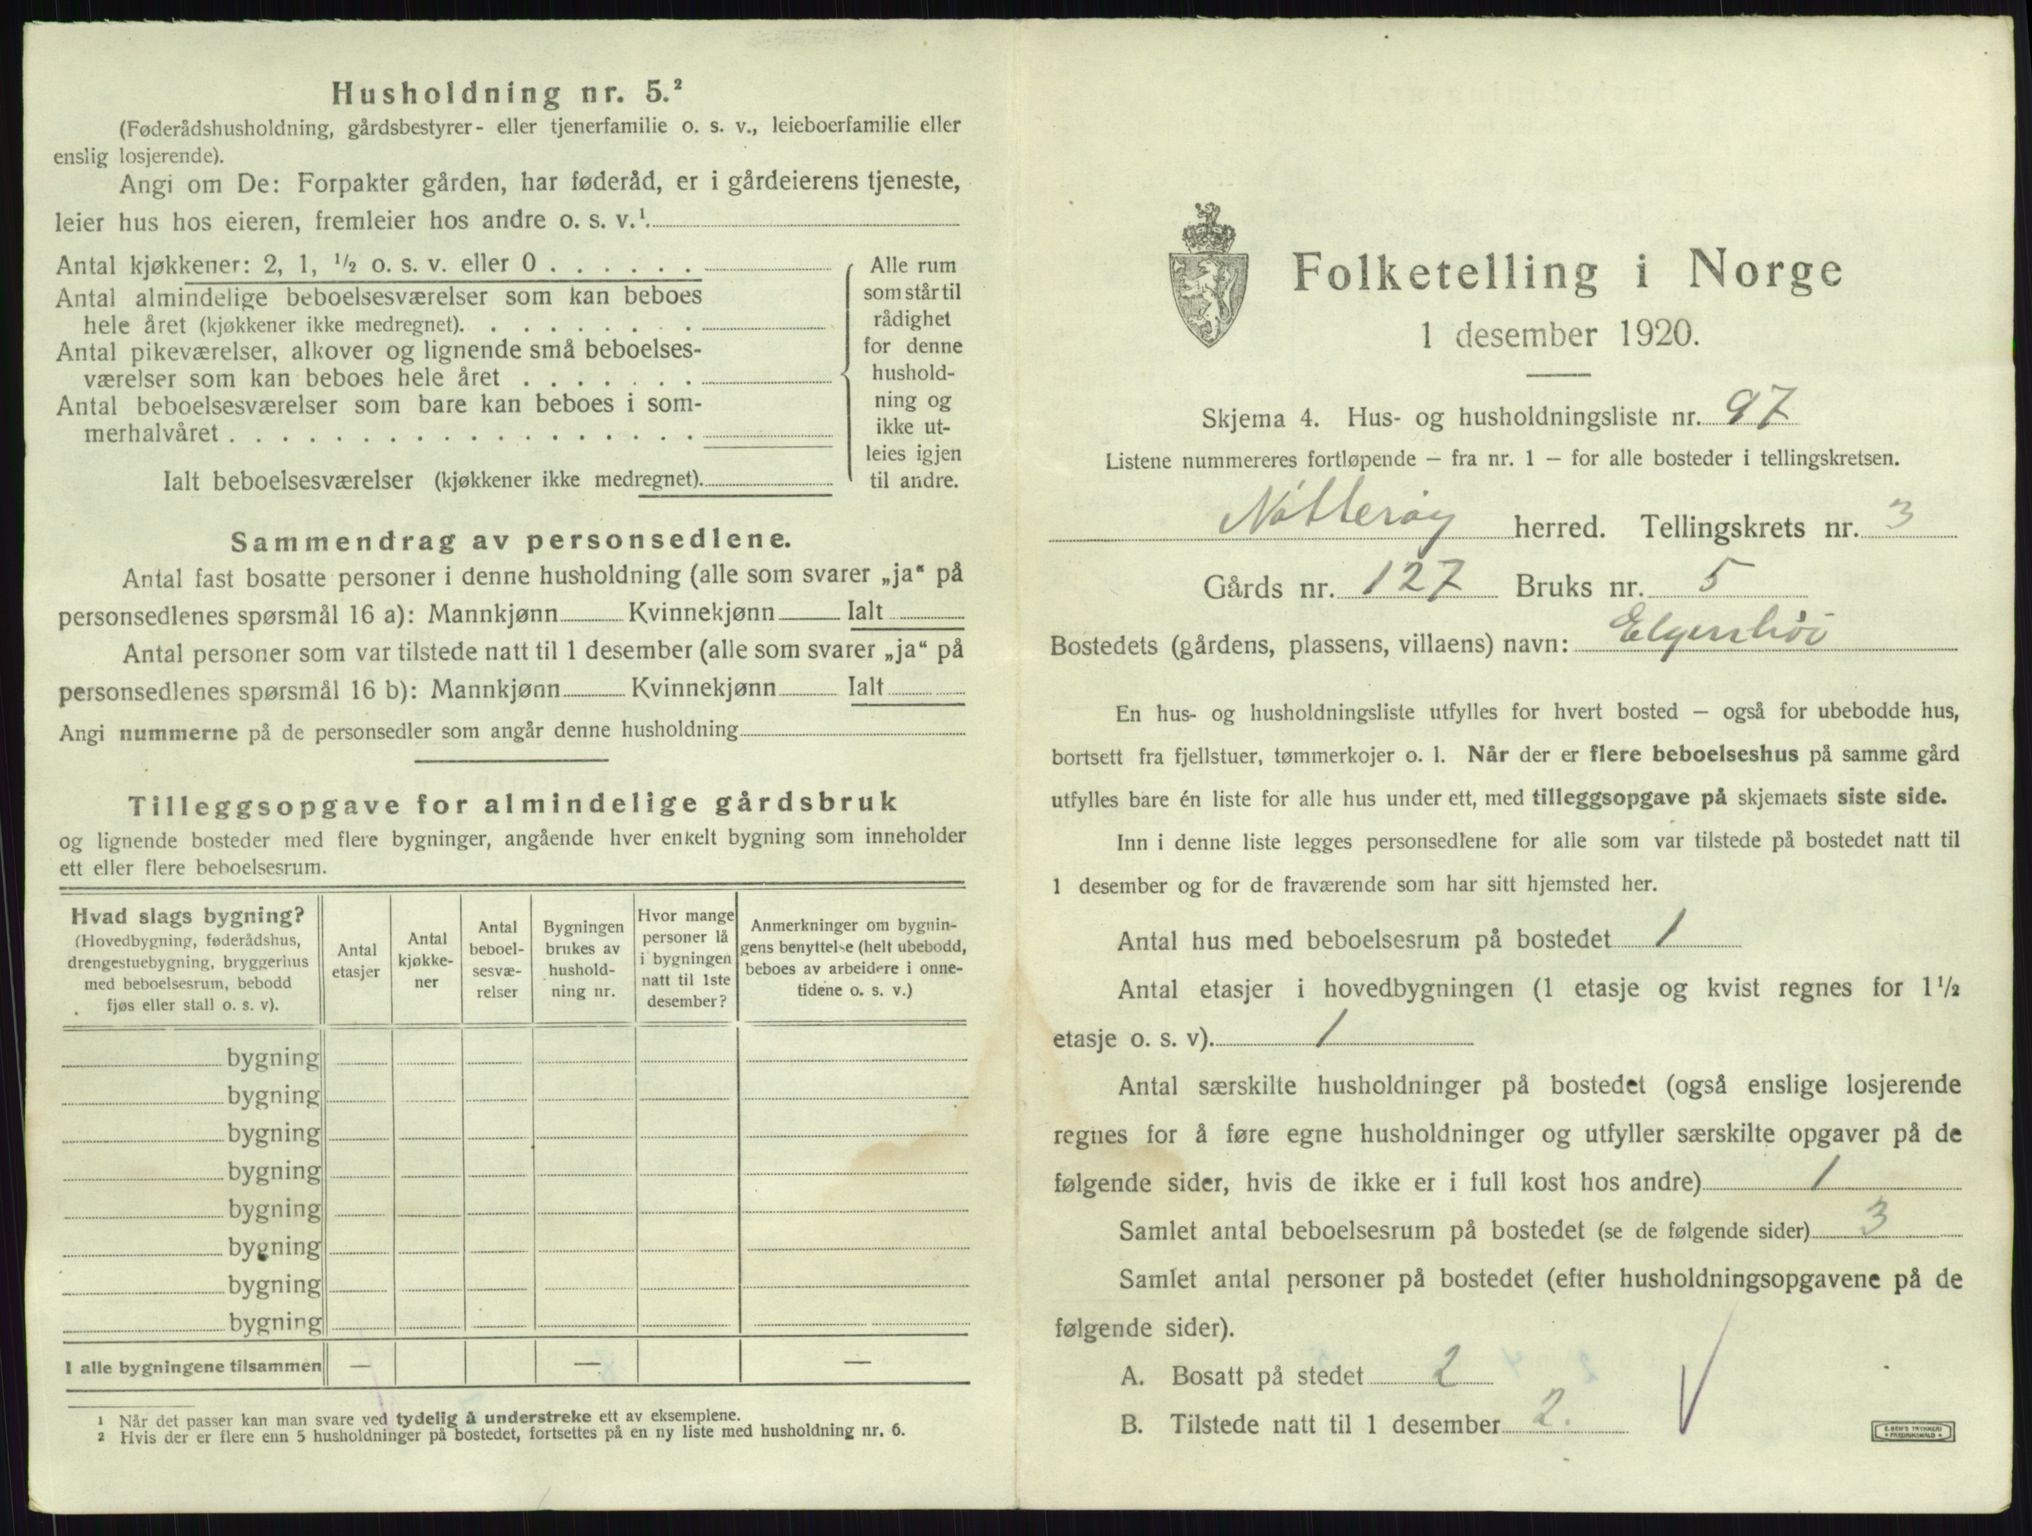 Husholdning nr. 5.²
(Føderådshusholdning, gårdsbestyrer- eller tjenerfamilie o. s. v., leieboerfamilie eller
enslig losjerende).
Angi om De: Forpakter gården, har føderåd, er i gårdeierens tjeneste,
leier hus hos eieren, fremleier hos andre o. s. v.¹.
Antal kjøkkener: 2, 1, ½ o. s. v. eller 0 . . . . . .
Antal almindelige beboelsesværelser som kan beboes
hele året (kjøkkener ikke medregnet). . . . . . . . .
Antal pikeværelser, alkover og lignende små beboelses-
værelser som kan beboes hele året . . . . . . .
Antal beboelsesværelser som bare kan beboes i som-
merhalvåret . . . . . . . . . . . . . . . . . .
Ialt beboelsesværelser (kjøkkener ikke medregnet).
Alle rum
som står til
rådighet
for denne
hushold-
ning og
ikke ut-
leies igjen
til andre.
Sammendrag av personsedlene.
Antal fast bosatte personer i denne husholdning (alle som svarer „ja“ på
personsedlenes spørsmål 16 a): Mannkjønn Kvinnekjønn Ialt
Antal personer som var tilstede natt til 1 desember (alle som svarer „ja“ på
personsedlenes spørsmål 16 b): Mannkjønn Kvinnekjønn Ialt
Angi nummerne på de personsedler som angår denne husholdning
Tilleggsopgave for almindelige gårdsbruk
og lignende bosteder med flere bygninger, angående hver enkelt bygning som inneholder
ett eller flere beboelsesrum.
Hvad slags bygning?
(Hovedbygning, føderådshus,
drengestuebygning, bryggerhus
med beboelsesrum, bebodd
fjøs eller stall o. s. v).
Antal
etasjer
Antal
kjøkke-
ner
Antal
beboel-
sesvæ-
relser
Bygningen
brukes av
hushold-
ning nr.
Hvor mange
personer lå
i bygningen
natt til 1ste
desember?
Anmerkninger om bygnin-
gens benyttelse (helt ubebodd,
beboes av arbeidere i onne-
tidene o. s. v.)
bygning
bygning
bygning
bygning
bygning
bygning
bygning
bygning
I alle bygningene tilsammen — — —
¹ Når det passer kan man svare ved tydelig å understreke ett av eksemplene.
² Hvis der er flere enn 5 husholdninger på bostedet, fortsettes på en ny liste med husholdning nr. 6.
Folketelling i Norge
1 desember 1920.
Skjema 4. Hus- og husholdningsliste nr. 97
Listene nummereres fortløpende – fra nr. 1 – for alle bosteder i tellingskretsen.
Nøtterøy herred. Tellingskrets nr. 3
Gårds nr. 127 Bruks nr. 5
Bostedets (gårdens, plassens, villaens) navn:
En hus- og husholdningsliste utfylles for hvert bosted – også for ubebodde hus,
bortsett fra fjellstuer, tømmerkojer o. l. Når der er flere beboelseshus på samme gård
utfylles bare én liste for alle hus under ett, med tilleggsopgave på skjemaets siste side.
Inn i denne liste legges personsedlene for alle som var tilstede på bostedet natt til
1 desember og for de fraværende som har sitt hjemsted her.
Antal hus med beboelsesrum på bostedet 1
Antal etasjer i hovedbygningen (1 etasje og kvist regnes for 1½
etasje o. s. v). 1
Antal særskilte husholdninger på bostedet (også enslige losjerende
regnes for å føre egne husholdninger og utfyller særskilte opgaver på de
følgende sider, hvis de ikke er i full kost hos andre) 1
Samlet antal beboelsesrum på bostedet (se de følgende sider) 3
Samlet antal personer på bostedet (efter husholdningsopgavene på de
følgende sider).
A. Bosatt på stedet 2
B. Tilstede natt til 1 desember 2.